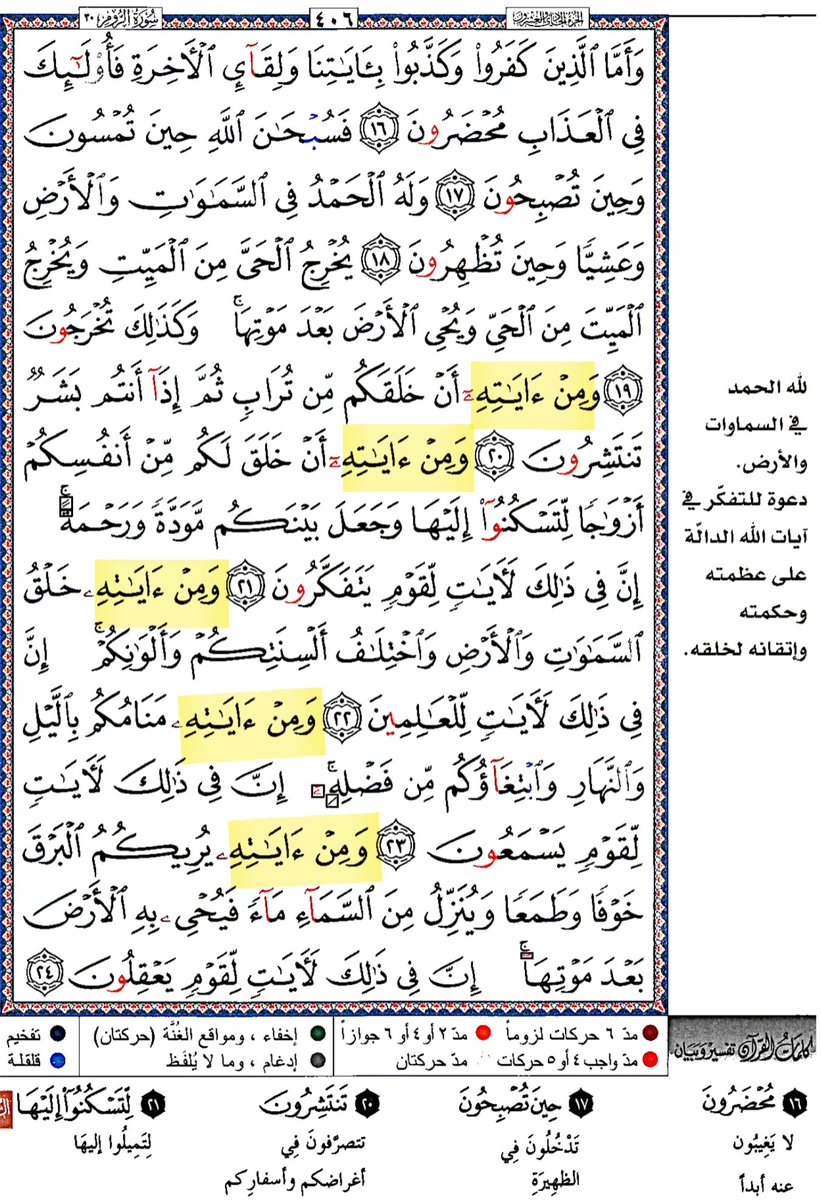 الجزء الحادي والعشرون ٤٠٦ سُورَةُ الرُّومِ ٣٠
وَأَمَّا ٱلَّذِينَ كَفَرُوا۟ وَكَذَّبُوا۟ بِـَٔايَـٰتِنَا وَلِقَآئِ ٱلْـَٔاخِرَةِ فَأُو۟لَـٰٓئِكَ
فِى ٱلْعَذَابِ مُحْضَرُونَ ١٦ فَسُبْحَـٰنَ ٱللَّهِ حِينَ تُمْسُونَ
وَحِينَ تُصْبِحُونَ ١٧ وَلَهُ ٱلْحَمْدُ فِى ٱلسَّمَـٰوَٰتِ وَٱلْأَرْضِ
وَعَشِيًّا وَحِينَ تُظْهِرُونَ ١٨ يُخْرِجُ ٱلْحَىَّ مِنَ ٱلْمَيِّتِ وَيُخْرِجُ
ٱلْمَيِّتَ مِنَ ٱلْحَىِّ وَيُحْىِ ٱلْأَرْضَ بَعْدَ مَوْتِهَا ۚ وَكَذَٰلِكَ تُخْرَجُونَ
١٩ وَمِنْ ءَايَـٰتِهِۦٓ أَنْ خَلَقَكُم مِّن تُرَابٍ ثُمَّ إِذَآ أَنتُم بَشَرٌ
تَنتَشِرُونَ ٢٠ وَمِنْ ءَايَـٰتِهِۦٓ أَنْ خَلَقَ لَكُم مِّنْ أَنفُسِكُمْ
أَزْوَٰجًا لِّتَسْكُنُوٓا۟ إِلَيْهَا وَجَعَلَ بَيْنَكُم مَّوَدَّةً وَرَحْمَةً ۚ
إِنَّ فِى ذَٰلِكَ لَـَٔايَـٰتٍ لِّقَوْمٍ يَتَفَكَّرُونَ ٢١ وَمِنْ ءَايَـٰتِهِۦ خَلْقُ
ٱلسَّمَـٰوَٰتِ وَٱلْأَرْضِ وَٱخْتِلَـٰفُ أَلْسِنَتِكُمْ وَأَلْوَٰنِكُمْ ۚ إِنَّ
فِى ذَٰلِكَ لَـَٔايَـٰتٍ لِّلْعَـٰلِمِينَ ٢٢ وَمِنْ ءَايَـٰتِهِۦ مَنَامُكُم بِٱلَّيْلِ
وَٱلنَّهَارِ وَٱبْتِغَآؤُكُم مِّن فَضْلِهِۦٓ ۚ إِنَّ فِى ذَٰلِكَ لَـَٔايَـٰتٍ
لِّقَوْمٍ يَسْمَعُونَ ٢٣ وَمِنْ ءَايَـٰتِهِۦ يُرِيكُمُ ٱلْبَرْقَ
خَوْفًا وَطَمَعًا وَيُنَزِّلُ مِنَ ٱلسَّمَآءِ مَآءً فَيُحْىِۦ بِهِ ٱلْأَرْضَ
بَعْدَ مَوْتِهَآ ۚ إِنَّ فِى ذَٰلِكَ لَـَٔايَـٰتٍ لِّقَوْمٍ يَعْقِلُونَ ٢٤
لله الحمد
في السماوات
والأرض.
دعوة للتفكّر في
آيات الله الدالّة
على عظمته
وحكمته
وإتقانه لخلقه.
مدّ ٦ حركات لزوماً مدّ ٢ أو ٤ أو ٦ جوازاً إخفاء، ومواقع الغُنَّة (حركتان) تفخيم
مدّ واجب ٤ أو ٥ حركات مدّ حركتان إدغام، وما لا يُلفَظ قلقلة
كلمات القرآن تفسير وبيان
١٦ مُحْضَرُونَ
لا يَغِيبُون
عنه أبداً
١٧ حِينَ تُصْبِحُونَ
تَدْخُلُونَ فِي
الظهِيرَةِ
٢٠ تَنتَشِرُونَ
تتصرّفونَ فِي
أغراضكم وأسفارِكم
٢١ لِّتَسْكُنُوٓا۟ إِلَيْهَا
لِتَمِيلُوا إليهَا